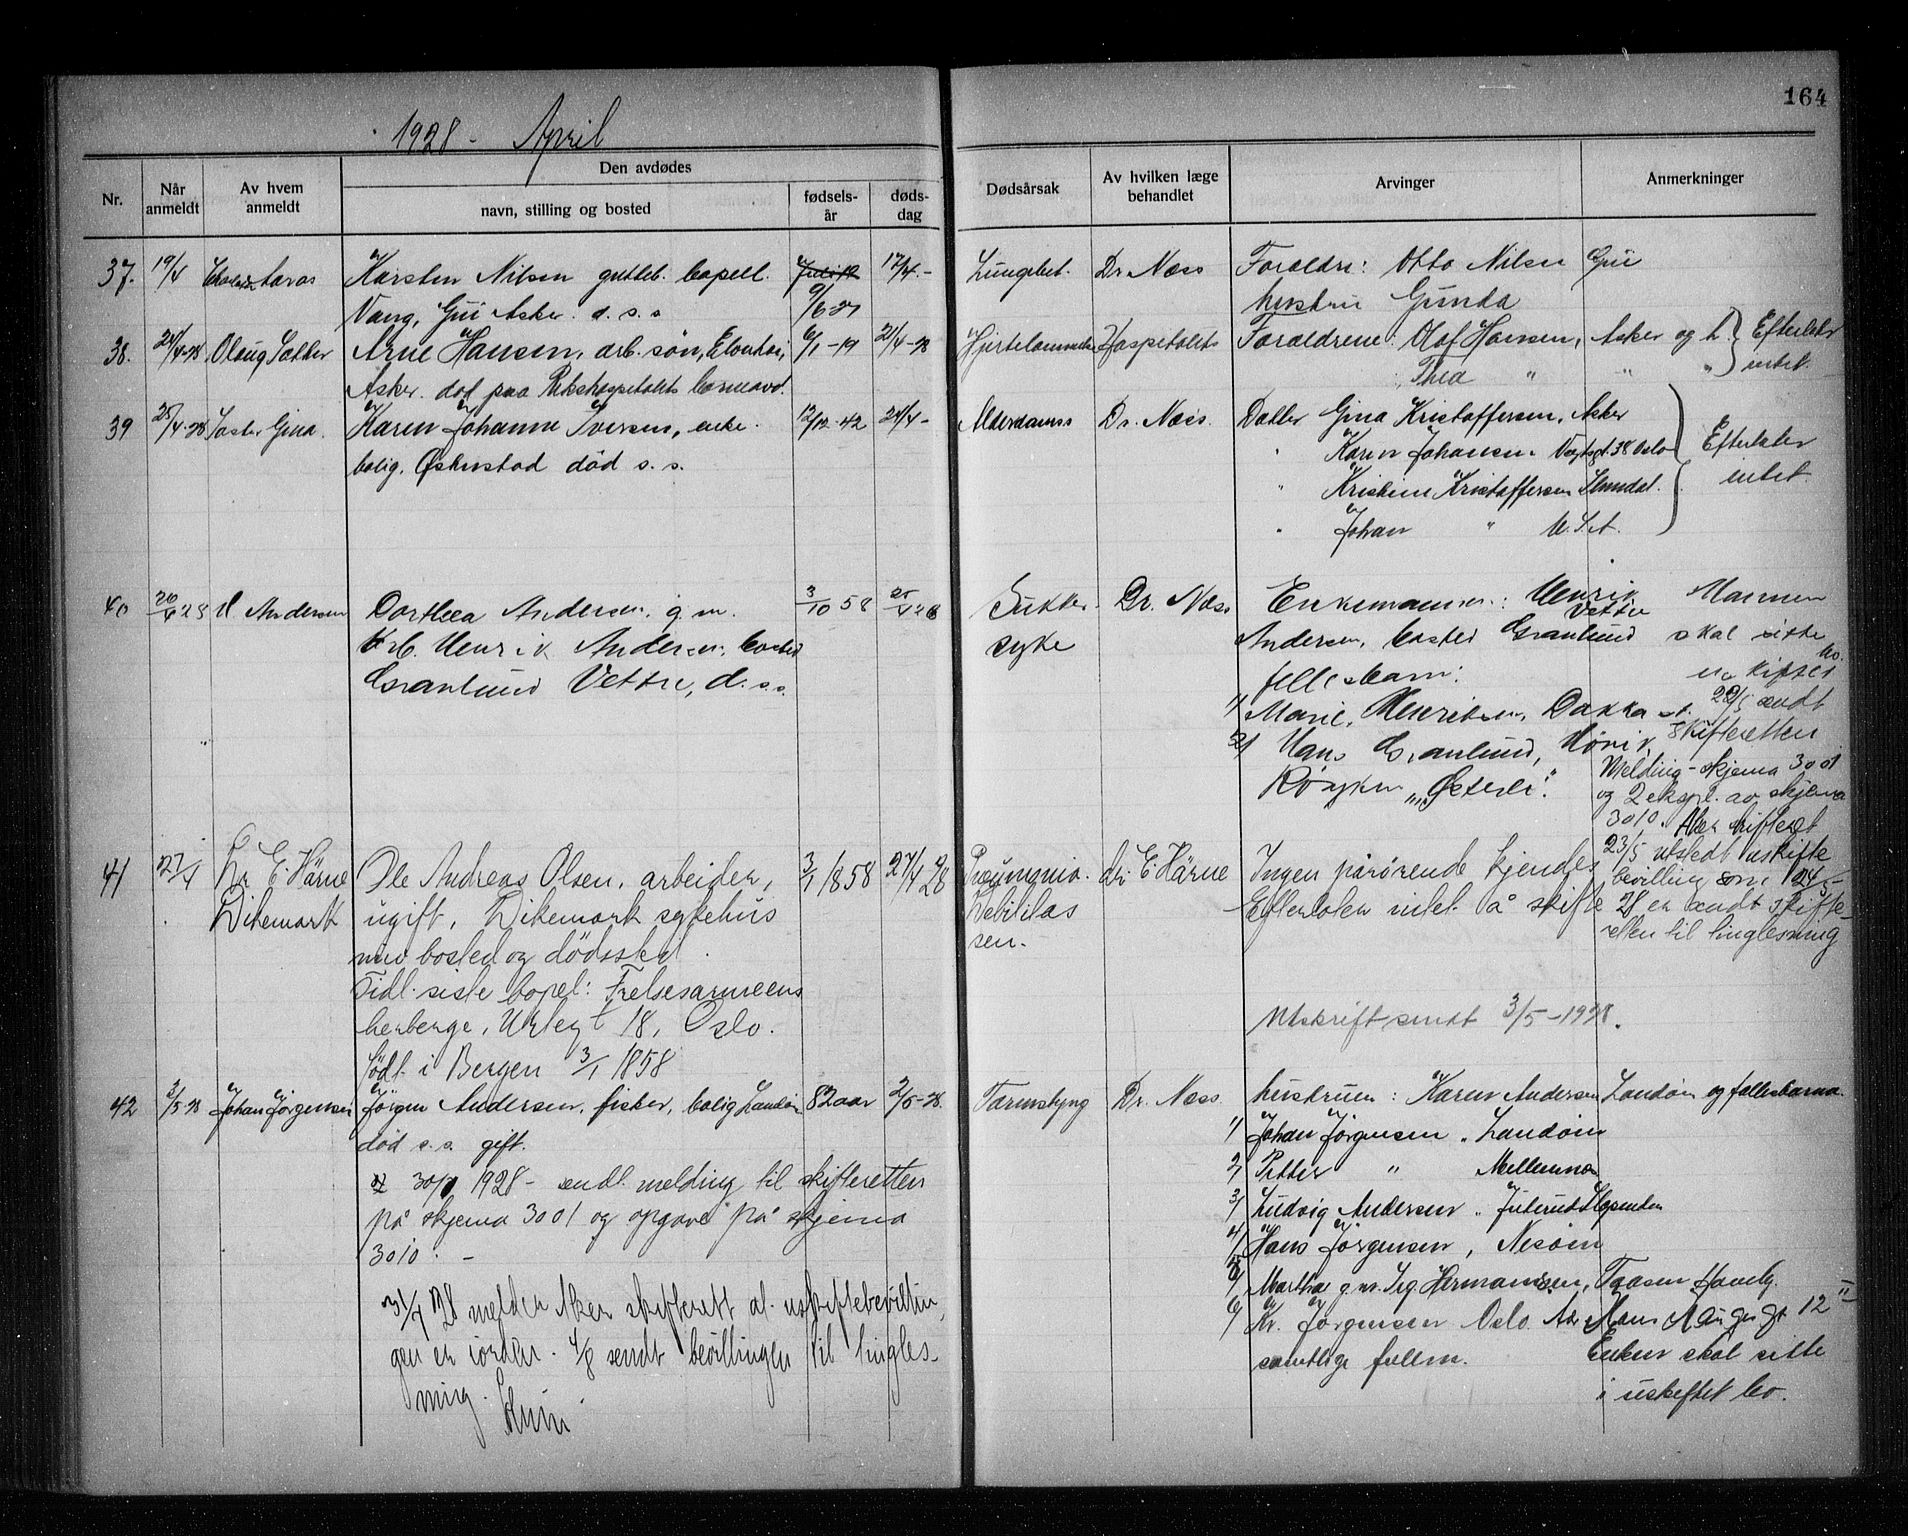 164
1928 - April
Nr.
Når anmeldt
Av hvem anmeldt
Den avdødes
navn, stilling og bosted
fødsels-år
døds-dag
Dødsårsak
Av hvilken læge behandlet
Arvinger
Anmerkninger
37. 19/4 Karsten Nilsen gutteb. bopell. 17/4 - Lungebet. Dr Næss Foræældre: Otto Nilsen Gui
Vang, Gui Asker. d. s. s 9/6 27 hustru Gunda
38. 24/4-28 Olaug Sætter Arne Hansen, arb. søn, 6/1-19 21/4-28 Hjertelammelse Hospitalets Forældrene: Olaf Hansen, Asker og h. Efterlater
Asker. død paa Rikshospitalets barneavd. Thea " " " intet.
39 25/4-28 Søster Gina. Karen Johanne Iversen, enke. 12/12-42 24/4- Alderdomss Dr. Næss. Datter Gina Kristoffersen, Asker
bolig, Øskustad død s. s. " Karen Johansen Vogtsgt. 38 Oslo Efterlater
" Kristine Kristoffersen intet.
" Johan " U.S.A.
40 26/4 28 H Andersen Dorthea Andersen, g. m. 3/10 58 25/4 28 Sukker- Dr. Næss Enkemannen: Henrik Mannen
Arb. Henrik Andersen, bosted syke Andersen, bosted Granlund Vettre skal sitte
Granlund Vettre, d. s.s. fellesbarn: uskiftet bo.
1/ Marie, Henriksen, Dakka st. 22/5 sendt
2/ Hans Granlund, Hønik, skifteretten
Røyken "Østerli". Melding-skjema 3001
og 2 ekspl. av skjema
3010. Aker skifteret
41 27/4 Dr E. Härne Ole Andreas Olsen, arbeider, 3/1 1858 27/4 28 Dr. E. Härne Ingen pårørende kjendes 23/5 utstedt uskifte
Dikemark ugift, Dikemark sykehus Debilitas Efterlater intet å skifte bevilling som 24/5-
sen. 28 er sendt skifte-
nuv bosted og dødssted retten til tinglesning
Tidl. siste bopel: Frelsesarmeens
herberge, Urtegt 18, Oslo. Utskrift sendt 3/5-1928.
født i Bergen 3/1 1858
42 2/5-28 Johan Jørgensen Jørgen Andersen, fisker, bolig Landøin 82 aar 2/5-28. Tarmslyng Dr. Næss. hustruen: Karen Andersen Landøin og fællesbarna.
død s. s. gift. 1/ Johan Jørgensen, Landøin
30/ 1928 - sendt melding til skifteretten 2/ Petter " Mellemnes
på skjema 3001 og opgave på skjema 3/ Ludvig Andersen, Julerud
3010. - 4/ Hans Jørgensen, Nesøin
5/ Marthae g. m. Sig. Hermansen, Taasen Haveby.
31/7 28 melder Aker skifterett at uskiftebevillin- 6/ Kr. Jørgensen Oslo. Adr Hans Nangs gt 12 II
gen er iorden. 4/8 sendt bevillingen til tingles- samtlige fullm. Enken skal sitte
ning. i uskiftet bo.